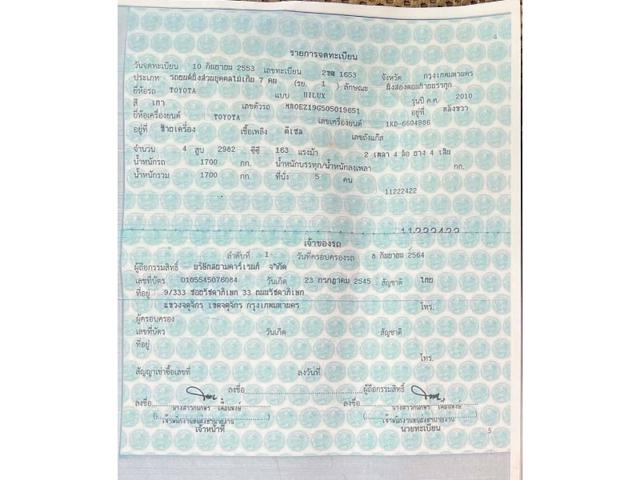 4
รายการจดทะเบียน
วันจดทะเบียน 10 กันยายน 2553 เลขทะเบียน 1653 จังหวัด กรุงเทพมหานคร
ประเภท รถยนต์นั่งส่วนบุคคลไม่เกิน 7 คน (รย. 1) ลักษณะ นั่งสองตอนท้ายบรรทุก
ยี่ห้อรถ TOYOTA แบบ HILUX รุ่นปี ค.ศ. 2010
สี เทา เลขตัวรถ อยู่ที่
ยี่ห้อเครื่องยนต์ TOYOTA เลขเครื่องยนต์
อยู่ที่ ข้างเครื่อง เชื้อเพลิง ดีเซล เลขถังแก๊ส
จำนวน 4 สูบ 2982 ซีซี 163 แรงม้า 2 เพลา 4 ล้อ ยาง 4 เส้น
น้ำหนักรถ 1700 กก. น้ำหนักบรรทุก/น้ำหนักลงเพลา กก.
น้ำหนักรวม 1700 กก. ที่นั่ง 5 คน
11222422
11222422
เจ้าของรถ
ลำดับที่ 1 วันที่ครอบครองรถ 8 กันยายน 2564
ผู้ถือกรรมสิทธิ์ จำกัด
เลขที่บัตร 0105545076084 วันเกิด 23 กรกฎาคม 2545 สัญชาติ ไทย
ที่อยู่ 9/333 ซอยรัชดาภิเษก 33 ถนนรัชดาภิเษก
แขวงจตุจักร เขตจตุจักร กรุงเทพมหานคร โทร.
ผู้ครอบครอง
เลขที่บัตร วันเกิด สัญชาติ
ที่อยู่
โทร.
สัญญาเช่าซื้อเลขที่ ลงวันที่
ลงชื่อ ผู้ถือกรรมสิทธิ์
ลงชื่อ ลงชื่อ
เจ้าหน้าที่ นายทะเบียน
5